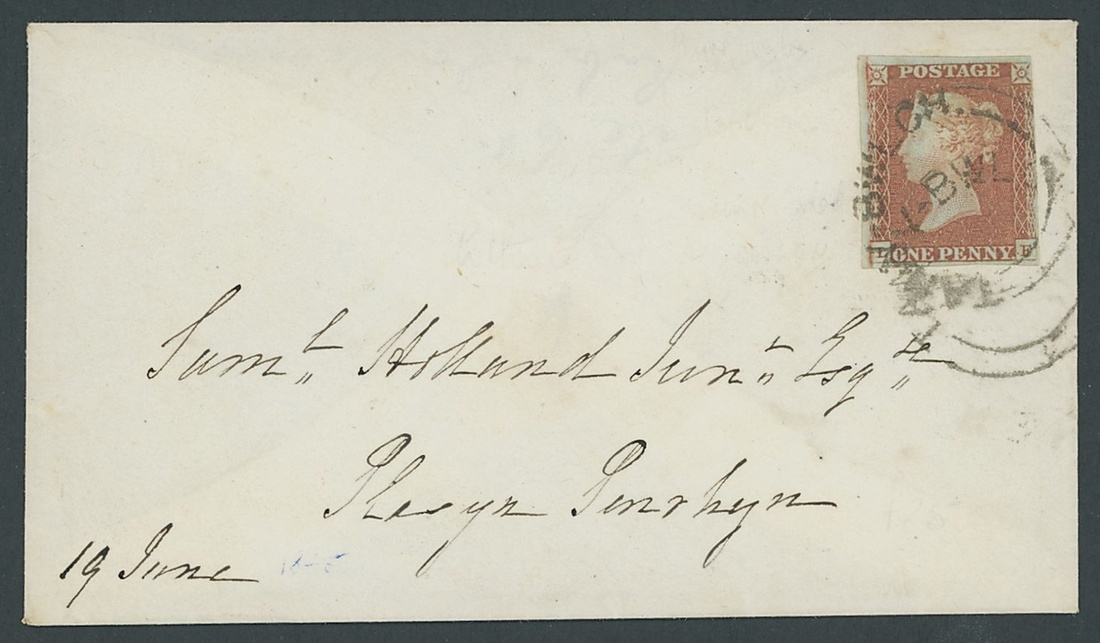 POSTAGE
ONE PENNY.
Saml. Holland Junr. Esqre.
Plasyn Penrhyn
19 June